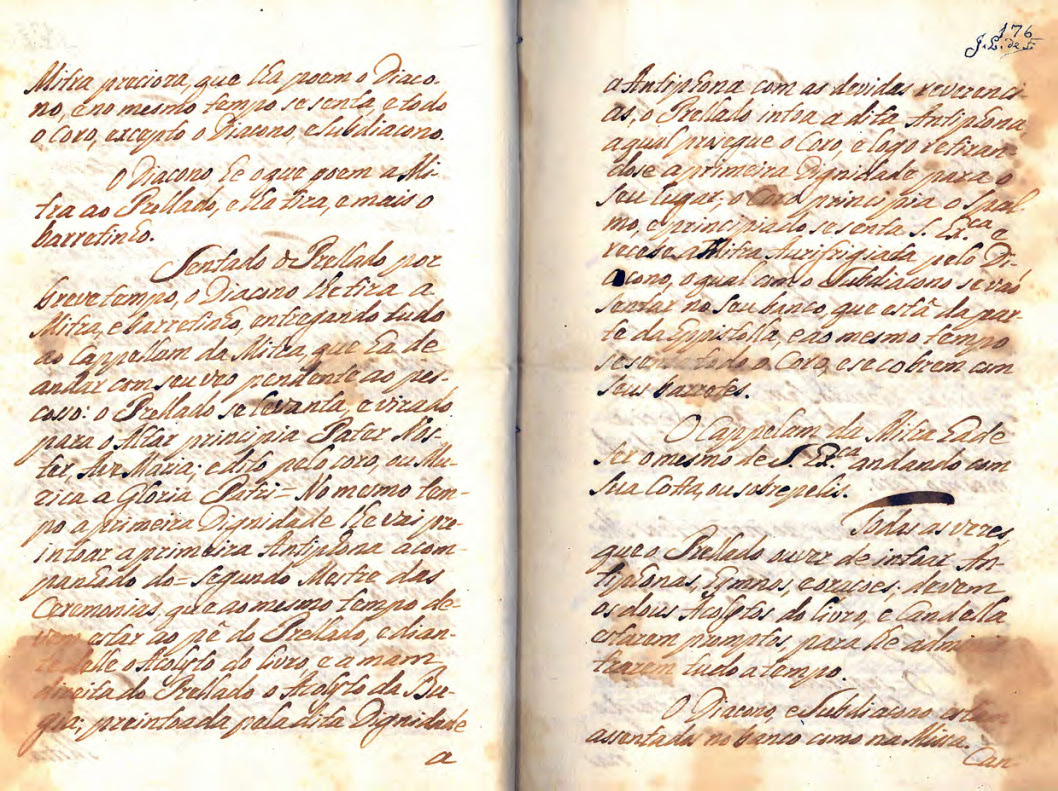 Mitra precioza, que lha poem o Diaco-
no, e no mesmo tempo se senta, e todo
o Coro, excepto o Diacono, e Subdiacono.
O Diacono he o que poem a Mi-
tra ao Prellado, e lha tira, e mais o
barretinho.
Sentado o Prellado por
breve tempo, o Diacono lhe tira a
Mitra, e barretinho, entregando tudo
ao Cappellam da Mitra, que ha de
andar com seu veo pendente ao pes-
coço: o Prellado se levanta, e virado
para o Altar principia Pater Nos-
ter, Ave Maria; e dito pelo coro, ou Mu-
zica a Gloria Patri= No mesmo tem-
po a primeira Dignidade lhe vai pre-
intoar a primeira Antiphona acom-
panhado do= Segundo Mestre das
Ceremonias, que ao mesmo tempo de-
vem estar ao pê do Prellado, e dian-
te delle o Acolyto do livro, e a mam
direita do Prellado o Acolyto da Bu-
gia; preintoada pela dita Dignidade
a
176
a Antiphona com as devidas reverenci-
as, o Prellado intoa a dita Antiphona,
a qual prosegue o Coro, e logo retiran-
dose a primeira Dignidade para o
seu lugar; o Coro principia o Psal-
mo, e principiado se senta S. Ex.ca e
recebe a Mitra Aurifrigiada pelo Di-
acono, o qual com o Subdiacono se vaõ
sentar no seu banco, que està da par-
te da Eppistolla, e ao mesmo tempo
se senta todo o Coro, e se cobrem com
seus barretes.
O Cappelam da Mitra ha de
ser o mesmo de S. Ex.ca andando com
sua Cotta, ou sobrepelis.
Todas as vezes
que o Prellado ouver de intoar An-
tiphonas, Hymnos, e orações; devem
os dous Acolytos do livro, e candella
estarem promptos, para lhe admi
trarem tudo a tempo.
O Diacono, e Subdiacono estam
assentados no banco como na Missa.
Can